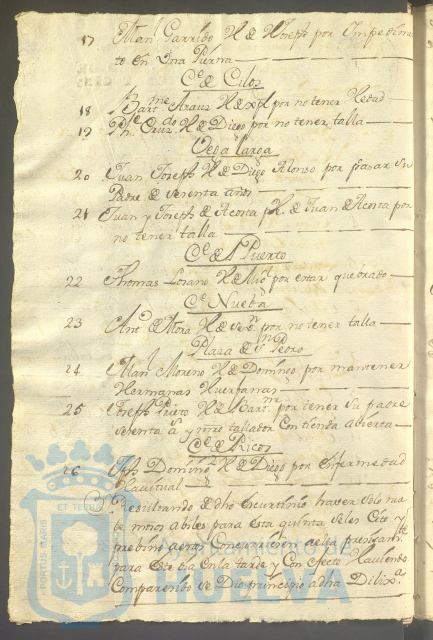 17 Man.l Garrido H. de Joseph por Impedimen
to en Una Pierna
C.e de Cilos
18 Bar.me Arauz H. de por no tener Hedad
19 Ph.e Cruz. H. de Diego por no tener talla
Vega larga
20 Juan Joseph H. de Diego Alonso por pasar Su
Padre de sesenta años
21 Juan y Joseph de Acosta H. de Juan de Acosta por
no tener talla
C.e del Puerto
22 Thomas Losano H. de por estar quebrado
C.e Nueba
23 Ant.o de Mora H. de por no tener talla
Plaza de S.n Pedro
24 Man.l Moreno H. de Domingo por mantener
Hermanas Huerfanas
25 Joseph Prieto H. de Bart.me por tener Su padre
sesenta a.s y tallador Con tienda avierta
C.e de Ricos
26 Domin.z H. de Diego por Enfermedad
Havitual
Resultando de dho Escrutinio haver solo nue
be mozos abiles para esta quinta seles Cito y
prebino a Concurriesen
para este dia en la tarde y Con efecto Haviendo
Comparecido se Dio principio adha Dilix.a
PORTUS MARIS ET TERRAE
Ayuntamiento de
HUELVA